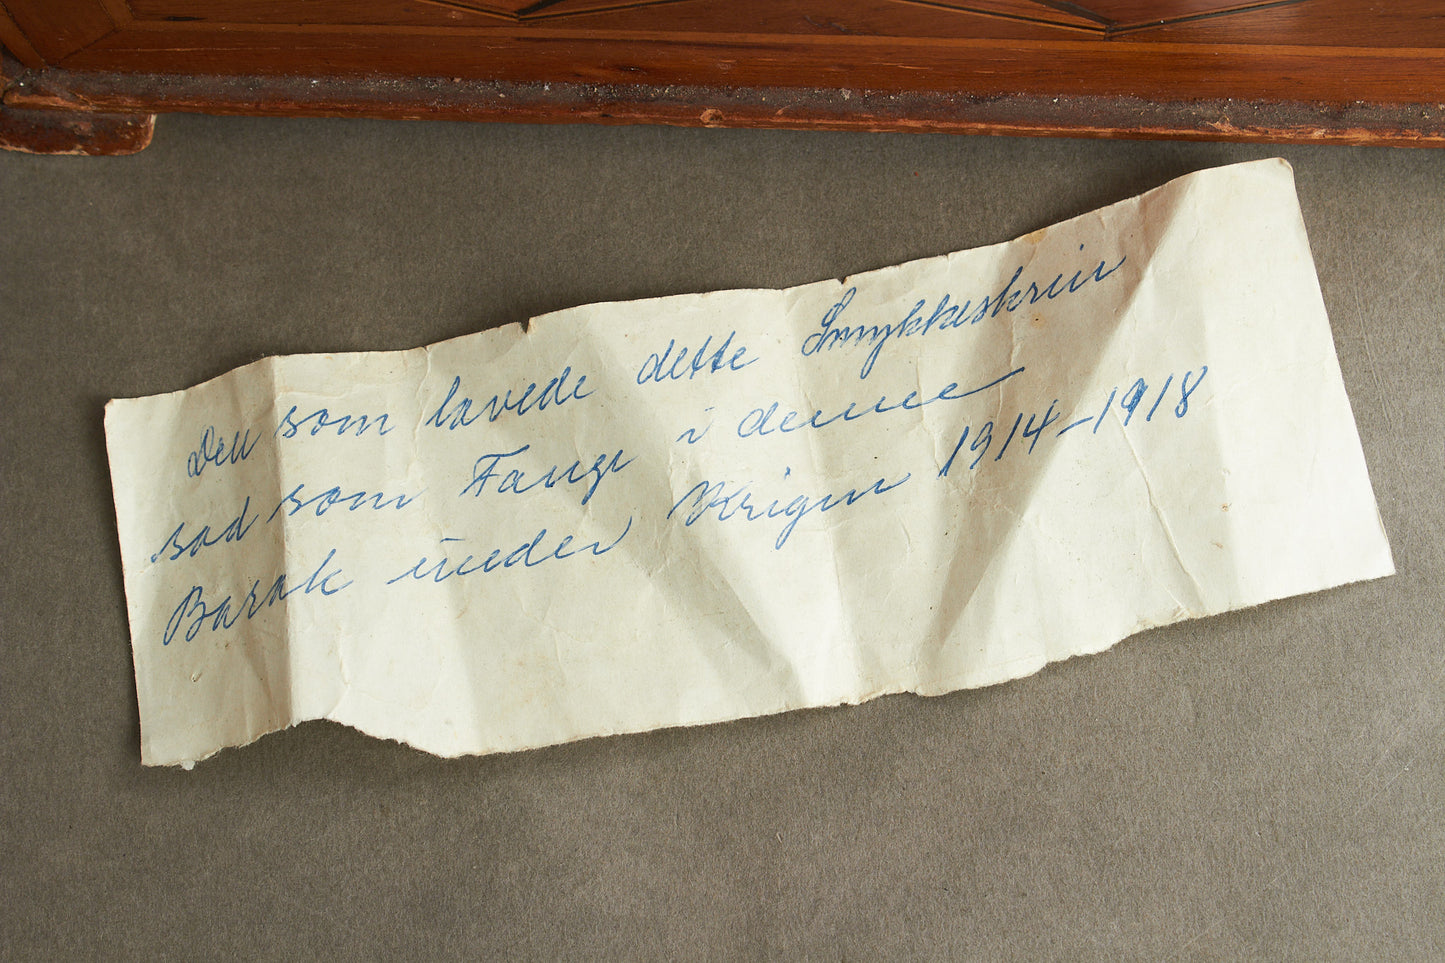 Den som lavede dette Smykkeskrin
sad som Fange i denne
Barak under Krigen 1914-1918